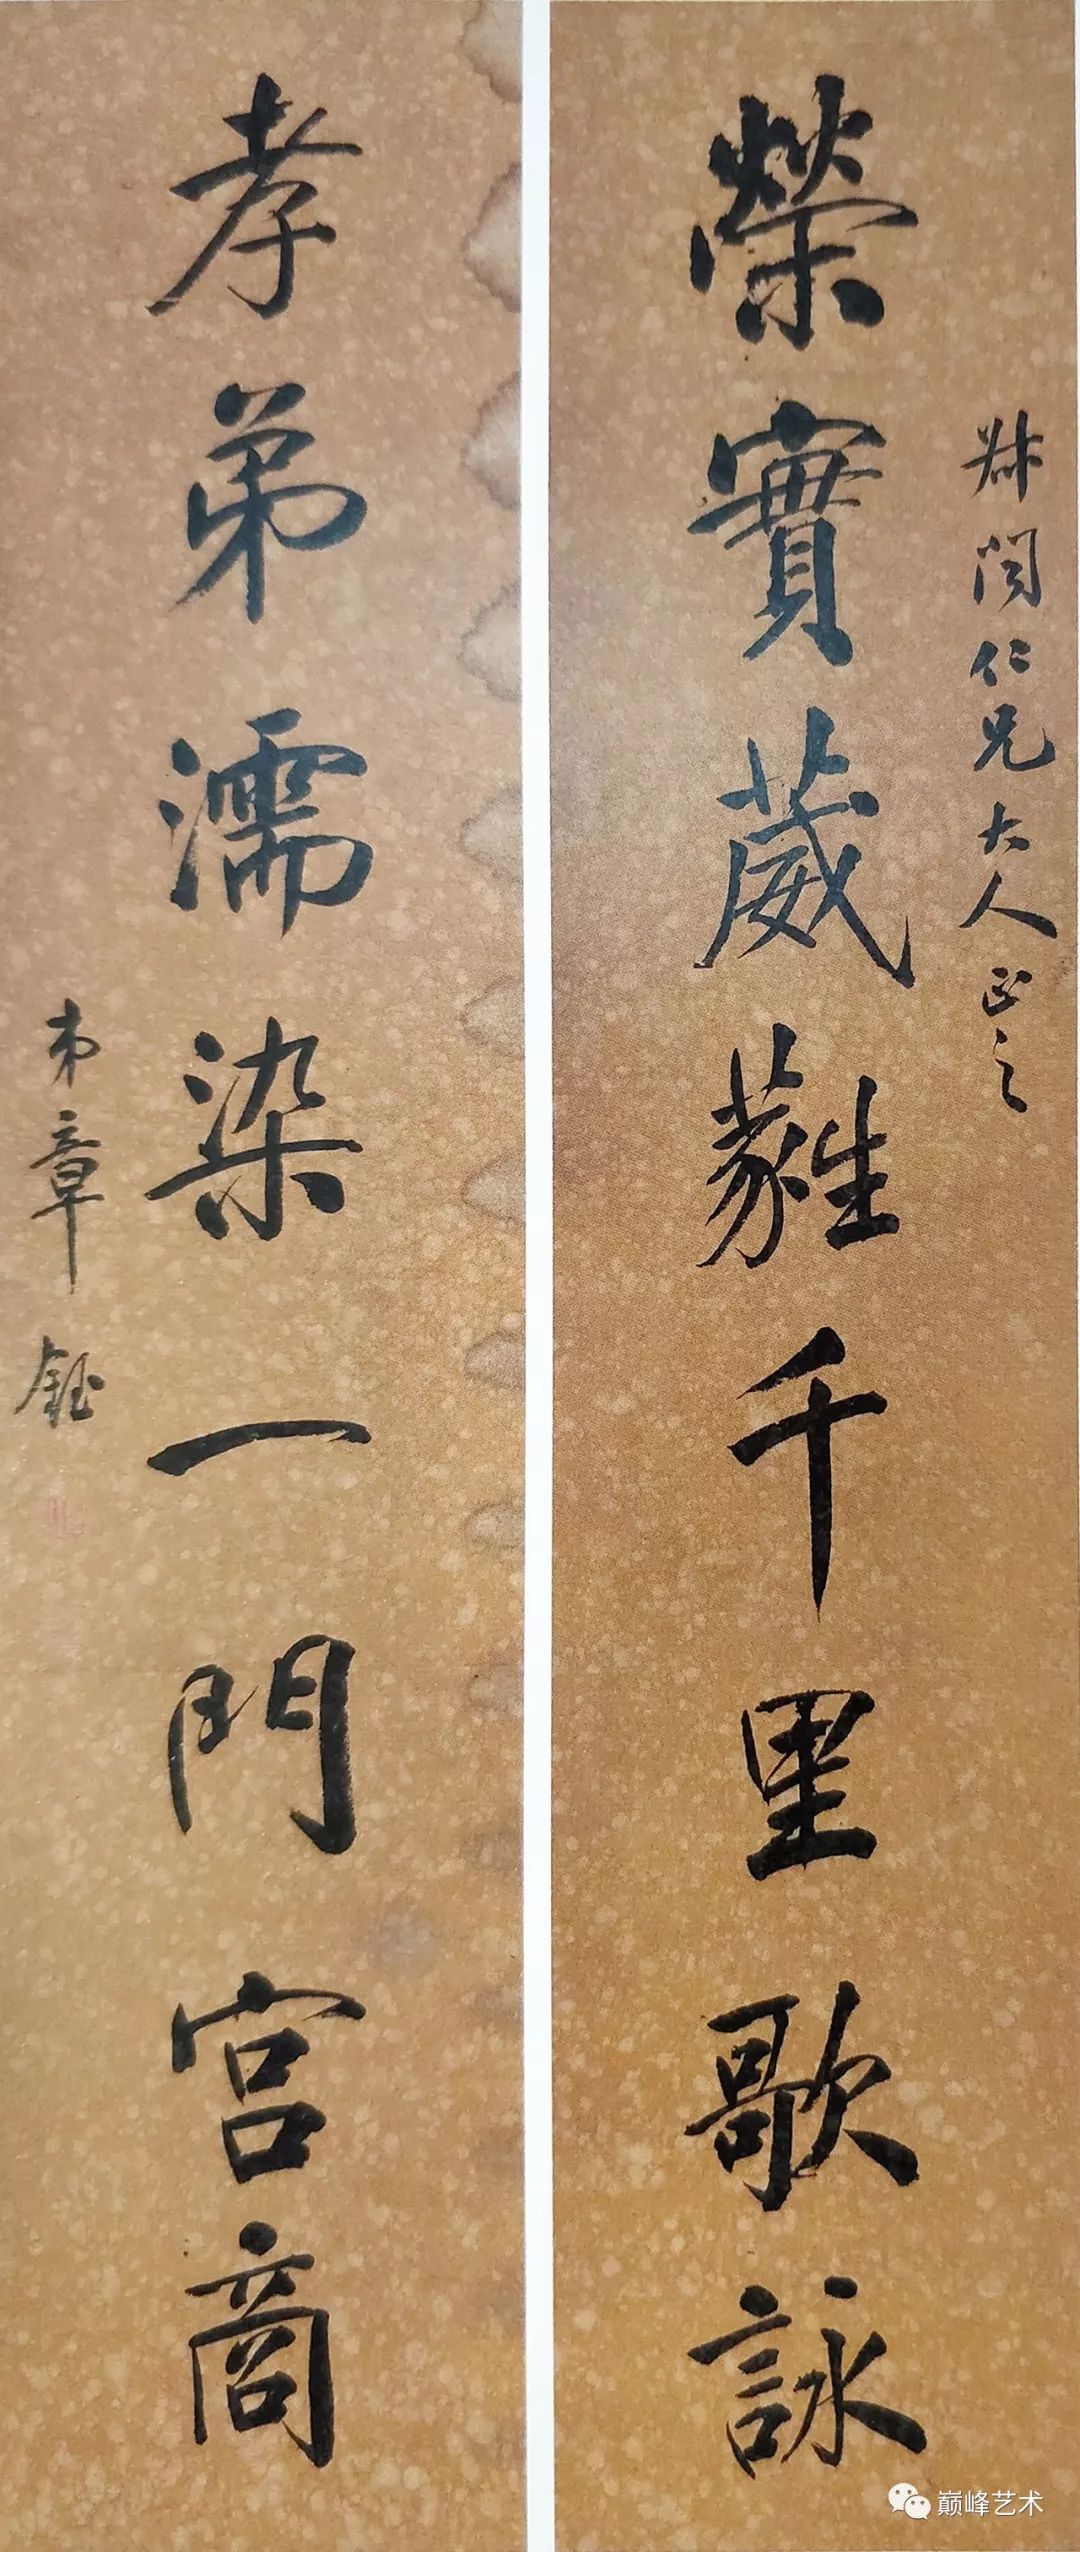 榮實葳蕤千里歌詠
仁兄大人正之
孝弟濡染一門宮商
弟章鈺
巅峰艺术